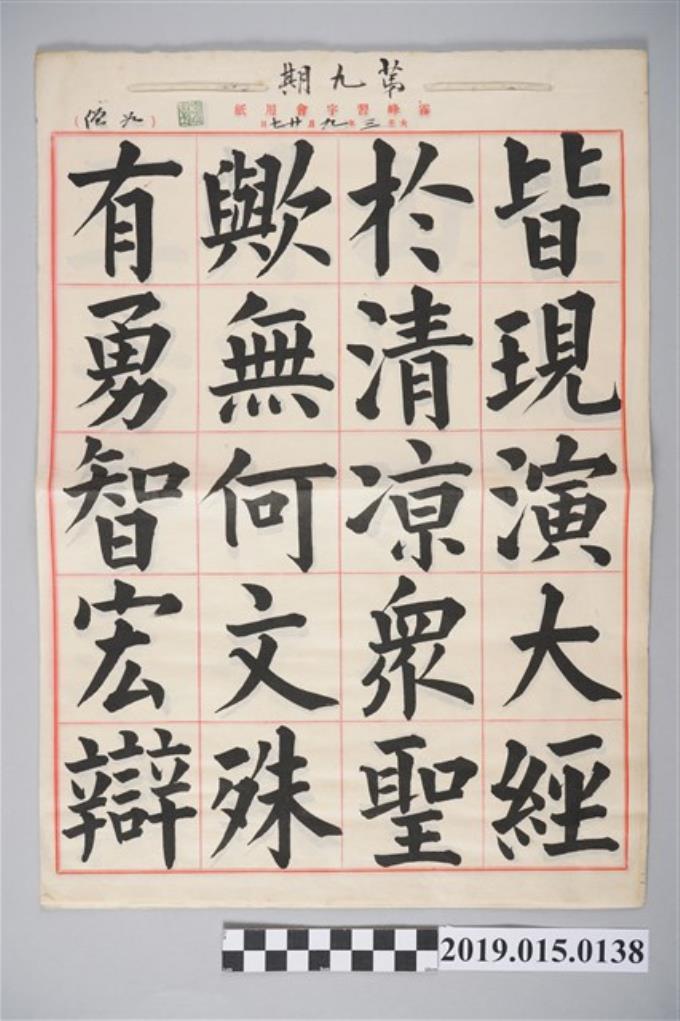 第九期
霧峰習字會用紙
大正三年九月廿七日
皆現演大經
於清凉衆聖
歟無何文殊
有勇智宏辯
2019.015.0138